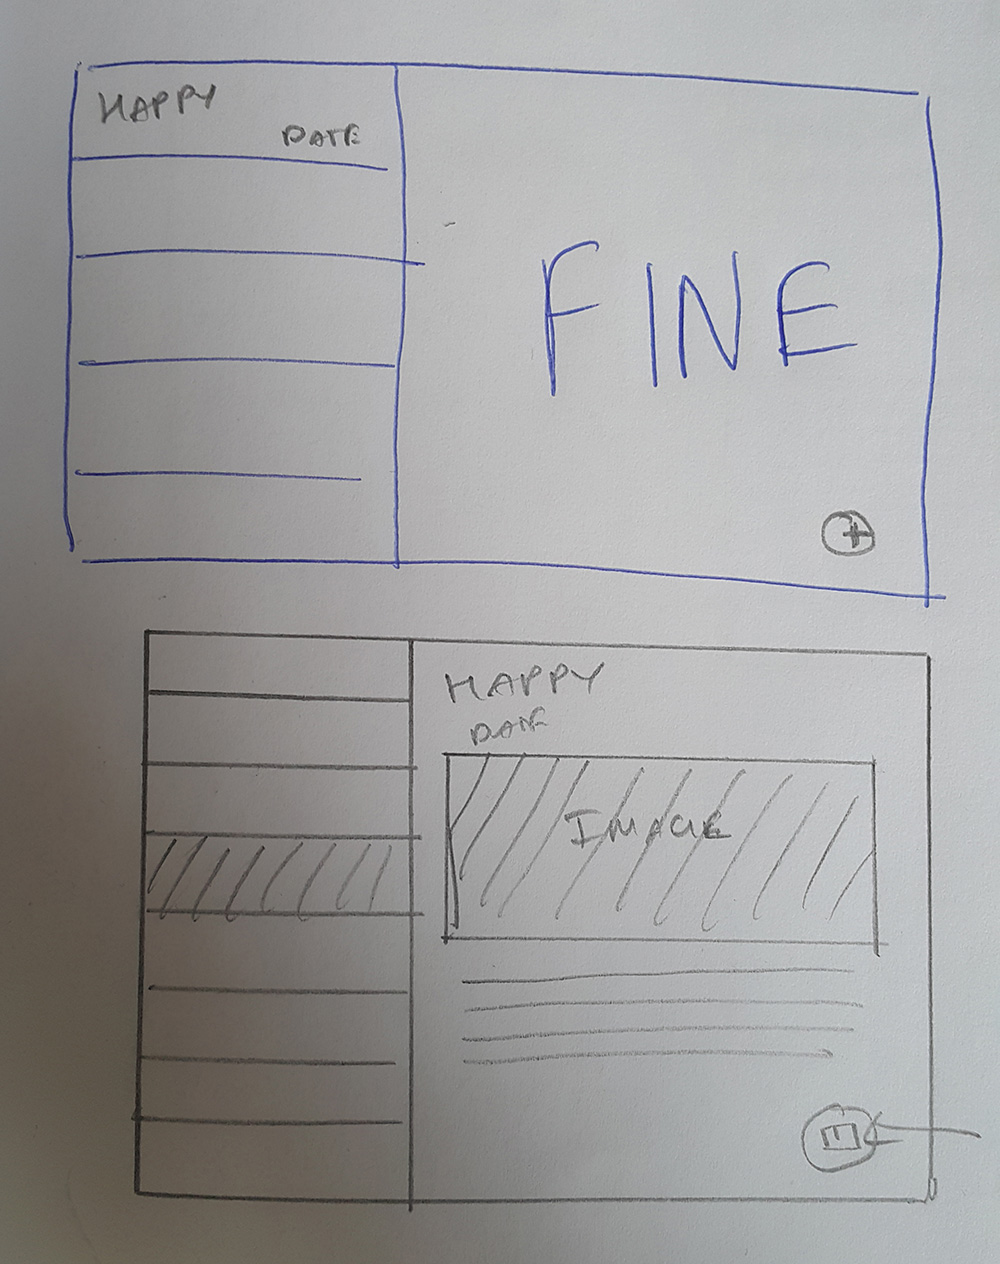 HAPPY
DATE
FINE
+
HAPPY
DATE
IMAGE